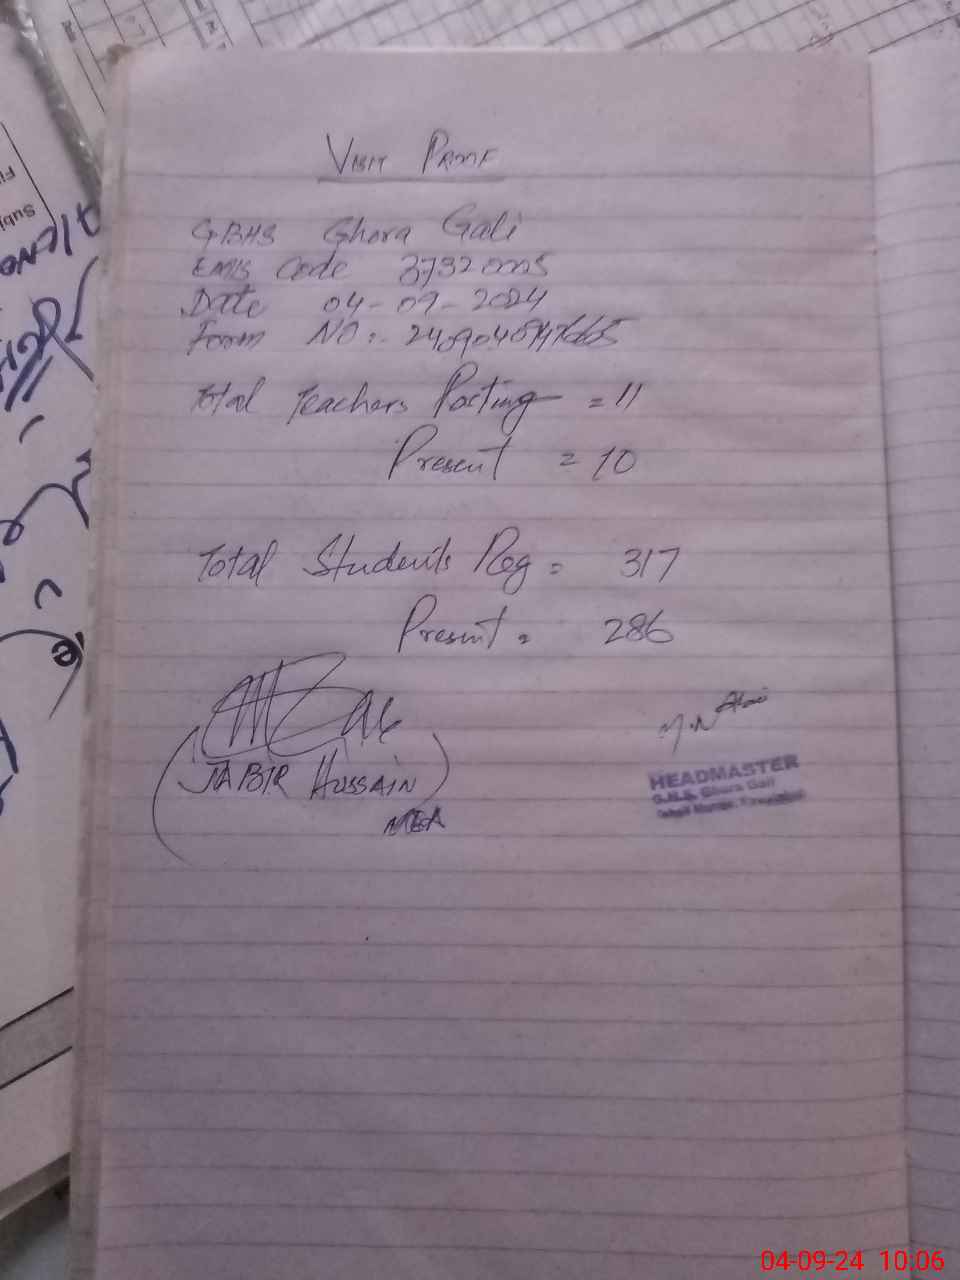 VISIT PROOF
GBHS Ghora Gali
EMIS Code 37320005
Date 04-09-2024
Form NO:-
Total Teachers Posting = 11
Present = 10
Total Students Reg = 317
Present = 286
(JABIR HUSSAIN)
MEA
HEADMASTER
G.H.S. Ghora Gali
04-09-24 10:06